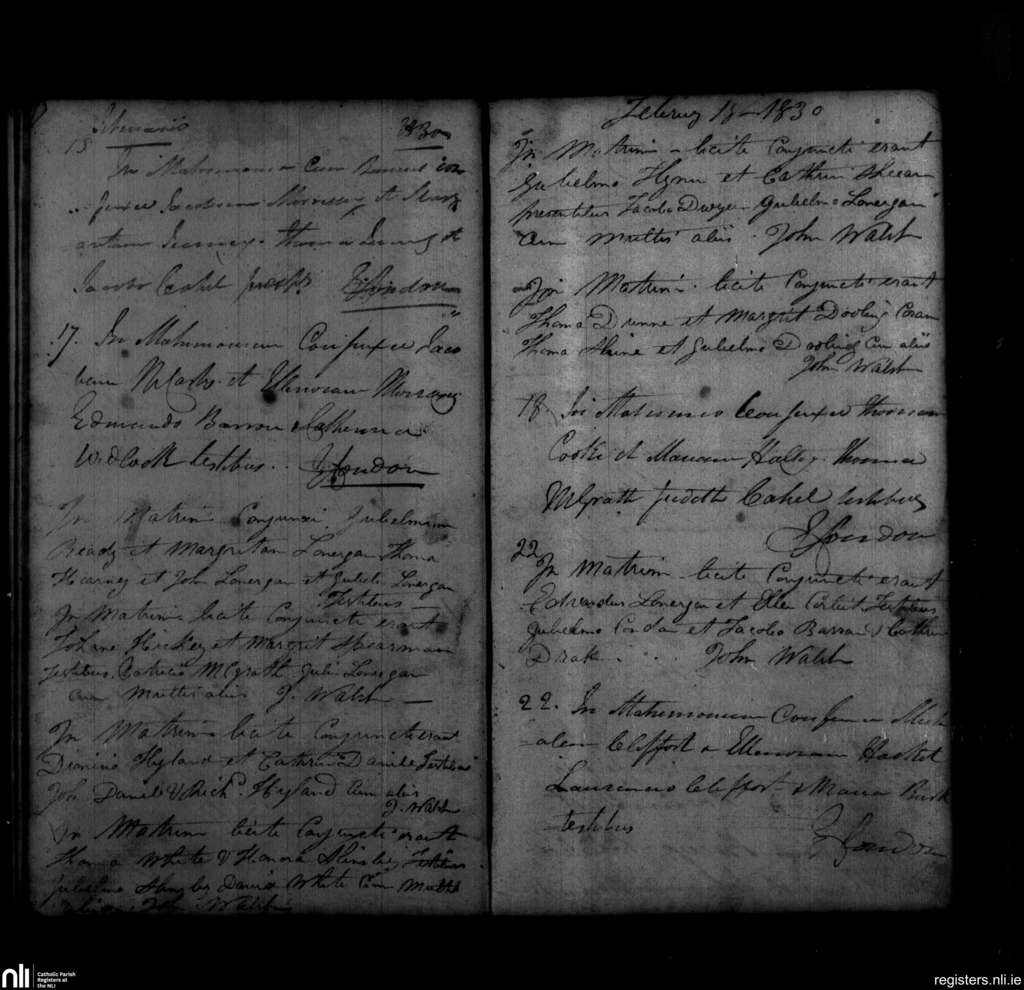 15 1830
In Matrimonium cum
Jacobum Morrissey et
Thoma et
Jacobo Cahel
17. In Matrimonium Conjunxi Jaco
bum McCarthy et Ellenoram Morrissey
Edmundo Barron & Catherina
Woodlock testibus.. J Condon
In Matrim Conjunxi Gulielmum
Ready et Margritam Lonergan Thoma
Hearney et John Lonergan et Gulielm Lonergan
Testibus
In Matrim licite Conjuncti erant
Johne Hickey et Margrit Shearman
testibus Patricio McGrath Juli Lonergan
cum Multis aliis J. Walsh
In Matrim licite Conjuncti erant
Dionisio Hyland et Cathrin Daniel Testibus
Joh Daniel & Rich.d Hyland Cum aliis
J. Walsh
In Matrim licite Conjuncti erant
Thoma White & Honora Slinsby Testibus
Gulielmo Slingby David White Cum Multis
aliis John Walsh
Februy 15 - 1830
In Matrim - licite Conjuncti erant
Gulielmo Flynn et Cathrin Shean
presentibus Jacobo Dwyer Gulielmo Lonergan
Cum Multis aliis. John Walsh
In Matrim licite Conjuncti erant
Thoma Dunne et Margrit Dooling Coram
Thoma Slaine et Gulielmo Dooling Cum aliis
John Walsh
18 In Matrimonio Conjunxi Thomam
Cooke et Mariam Haley. Thoma
McGrath Judith Cahel testibus
J Condon
22 In Matrim licite Conjuncti erant
Edvardus Lonergan et Ellen Corbeit Testibus
Gulielmo Condon et Jacobo Barron & Cathrin
Drak.... John Walsh
22. In Matrimonium Conjunxi Mich
alem Cleffort & Ellenoram Hacket
Laurencio Cleffort & Maria Burk
testibus
J Condon
nli Catholic Parish
Registers at
the NLI
registers.nli.ie